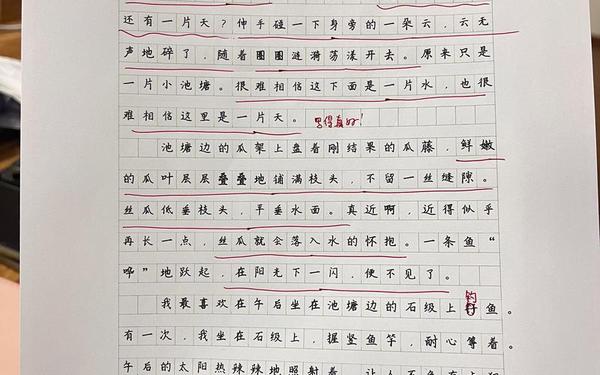 还有一片天？伸手碰一下身旁的一朵云，云无
声地碎了，随着圈圈涟漪荡漾开去。原来只是
一片小池塘。很难相信这下面是一片水，也很
难相信这里是一片天。 写得真好！
池塘边的瓜架上盘着刚结果的瓜藤，鲜嫩
的瓜叶层层叠叠地铺满枝头，不留一丝缝隙。
丝瓜低垂枝头，平垂水面。真近啊，近得似乎
再长一点，丝瓜就会落入水的怀抱。一条鱼“
哗”地跃起，在阳光下一闪，便不见了。
钓
我最喜欢在午后坐在池塘边的石级上钓鱼。
有一次，我坐在石级上，握竖鱼竿，耐心等着。
午后的太阳热辣辣地照射着，让人不免有